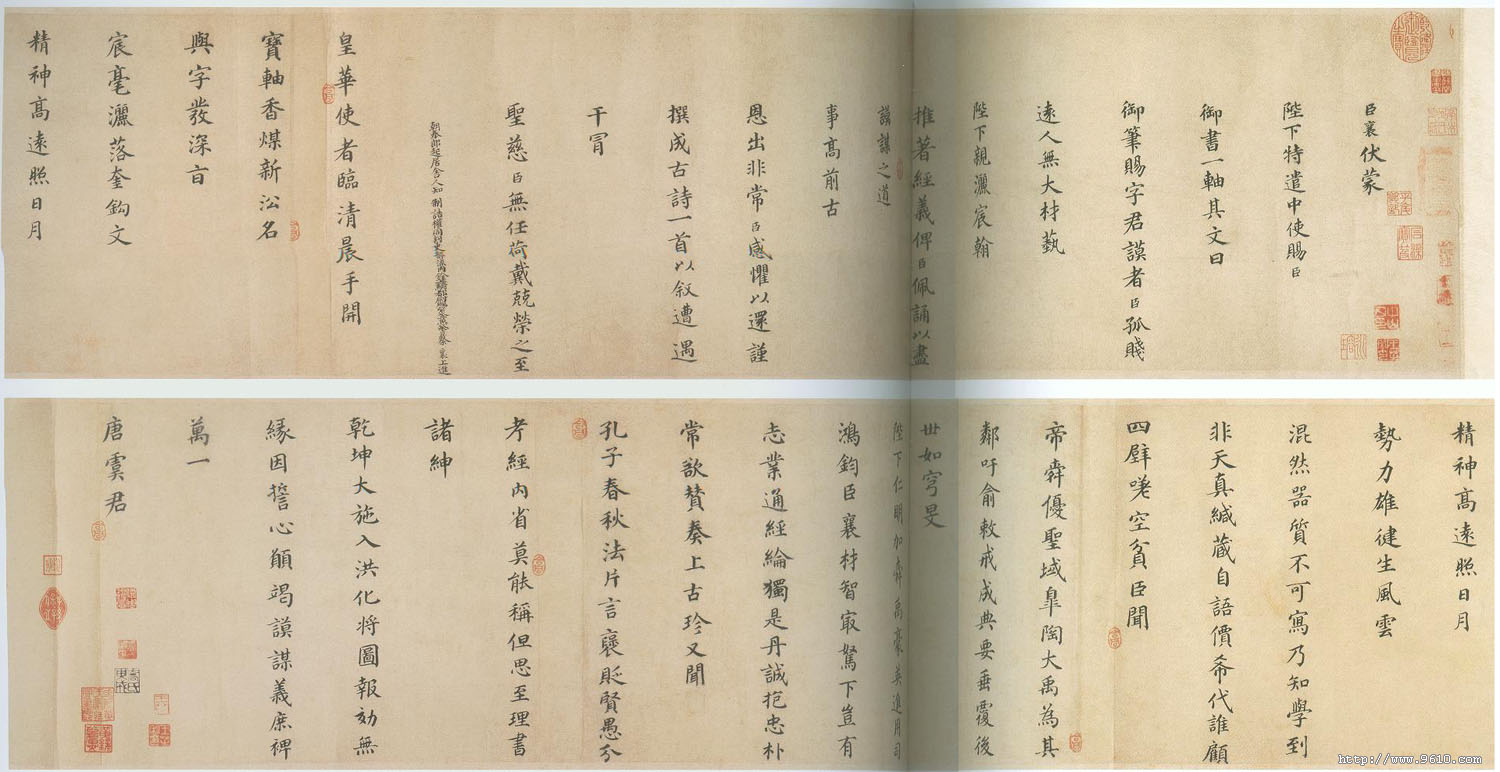 臣襄伏蒙
陛下特遣中使賜臣
御書一軸其文曰
御筆賜字君謨者臣孤賤
遠人無大材藝
陛下親灑宸翰
推著經義俾臣佩誦以盡
謨謀之道
事髙前古
恩出非常臣感懼以還謹
撰成古詩一首以叙遭遇
干冒
聖慈臣無任荷戴兢榮之至
朝奉郎起居舍人知 制誥權同判吏部流內銓 蔡襄上進
皇華使者臨清晨手開
寶軸香煤新沄名
與字發深㫖
宸毫灑落奎鈎文
精神髙遠照日月
精神髙遠照日月
勢力雄健生風雲
混然器質不可寫乃知學到
非天真緘藏自語價希代誰顧
四壁嗟空貧臣聞
帝舜優聖域臯陶大禹為其
鄰吁俞敕戒成典要垂覆後
世如穹旻
陛下仁明加舜禹豪英進用司
鴻鈞臣襄材智最駑下豈有
志業通經綸獨是丹誠抱忠朴
常欲贊奏上古珍又聞
孔子春秋法片言襃貶賢愚分
考經內省莫能稱但思至理書
諸紳
乾坤大施入洪化將圖報効無
縁因誓心願竭謨謀義庶裨
萬一
唐虞君
http://www.9610.com